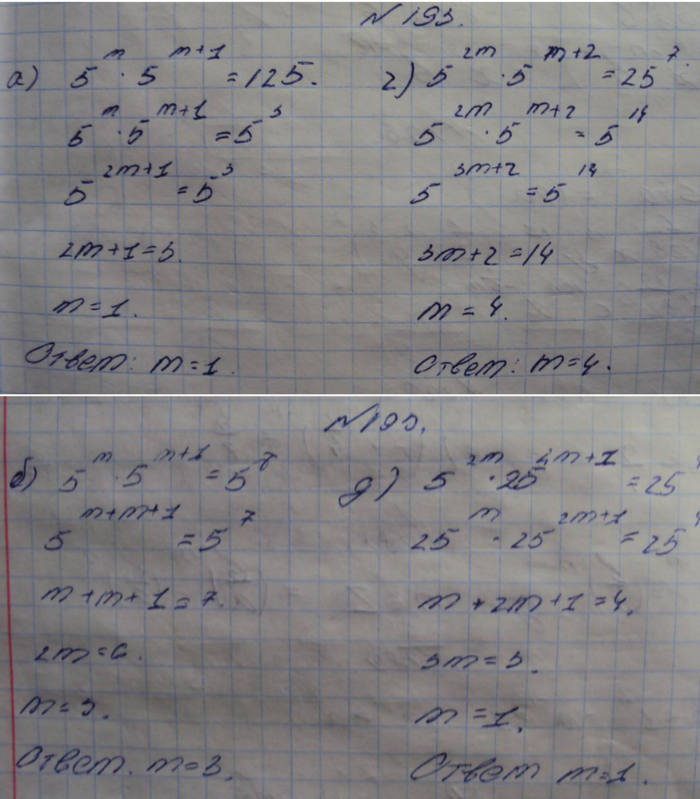 № 193.
а) 5^m · 5^(m+1) = 125.
5^m · 5^(m+1) = 5^3
5^(2m+1) = 5^3
2m+1=3.
m=1.
Ответ: m=1.
г) 5^(2m) · 5^(m+2) = 25^7.
5^(2m) · 5^(m+2) = 5^14
5^(3m+2) = 5^14
3m+2=14
m=4.
Ответ: m=4.
№193.
б) 5^m · 5^(m+1) = 5^7
5^(m+m+1) = 5^7
m+m+1=7.
2m=6.
m=3.
Ответ. m=3.
д) 5^(2m) · 25^(2m+1) = 25^4
25^m · 25^(2m+1) = 25^4
m+2m+1=4.
3m=3.
m=1.
Ответ m=1.